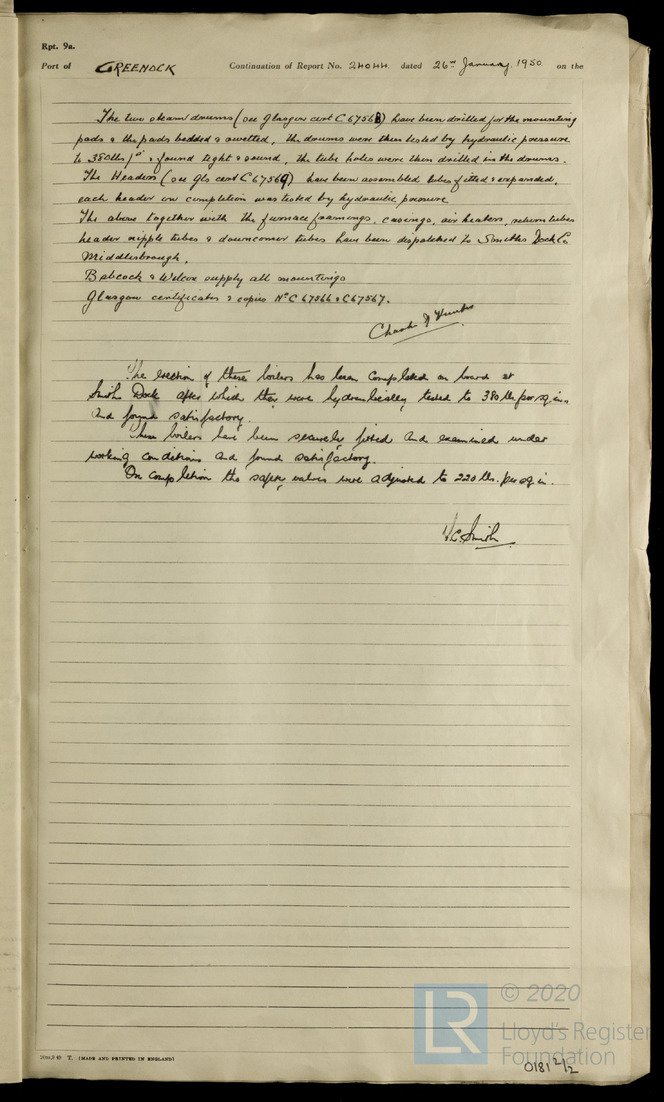 Rpt. 9a.
Port of GREENOCK Continuation of Report No. 24044 dated 26th January, 1950 on the
The two steam drums (see Glasgow cert C 67568) have been drilled for the mounting
pads & the pads bedded & swetted, the drums were then tested by hydraulic pressure
to 380lbs/□" & found tight & sound, the tube holes were then drilled in the drums.
The Headers (see Gls cert C 67569) have been assembled tubes fitted & expanded,
each header on completion was tested by hydraulic pressure
The above together with the furnace framings, casings, air heaters, return tubes
header nipple tubes & downcomer tubes have been dispatched to Smiths Dock Co
Middlesbrough.
Babcock & Wilcox supply all mountings
Glasgow certificates & copies No C 67566 & C67567.
The erection of these boilers has been completed on board at
Smith Dock after which they were hydraulically tested to 380 lb per sq.in.
and found satisfactory.
These boilers have been securely fitted and examined under
working conditions and found satisfactory.
On completion the safety valves were adjusted to 220 lbs. per sq.in.
Smith
T. (MADE AND PRINTED IN ENGLAND)
LR © 2020
Lloyd's Register
Foundation
0181 2/2